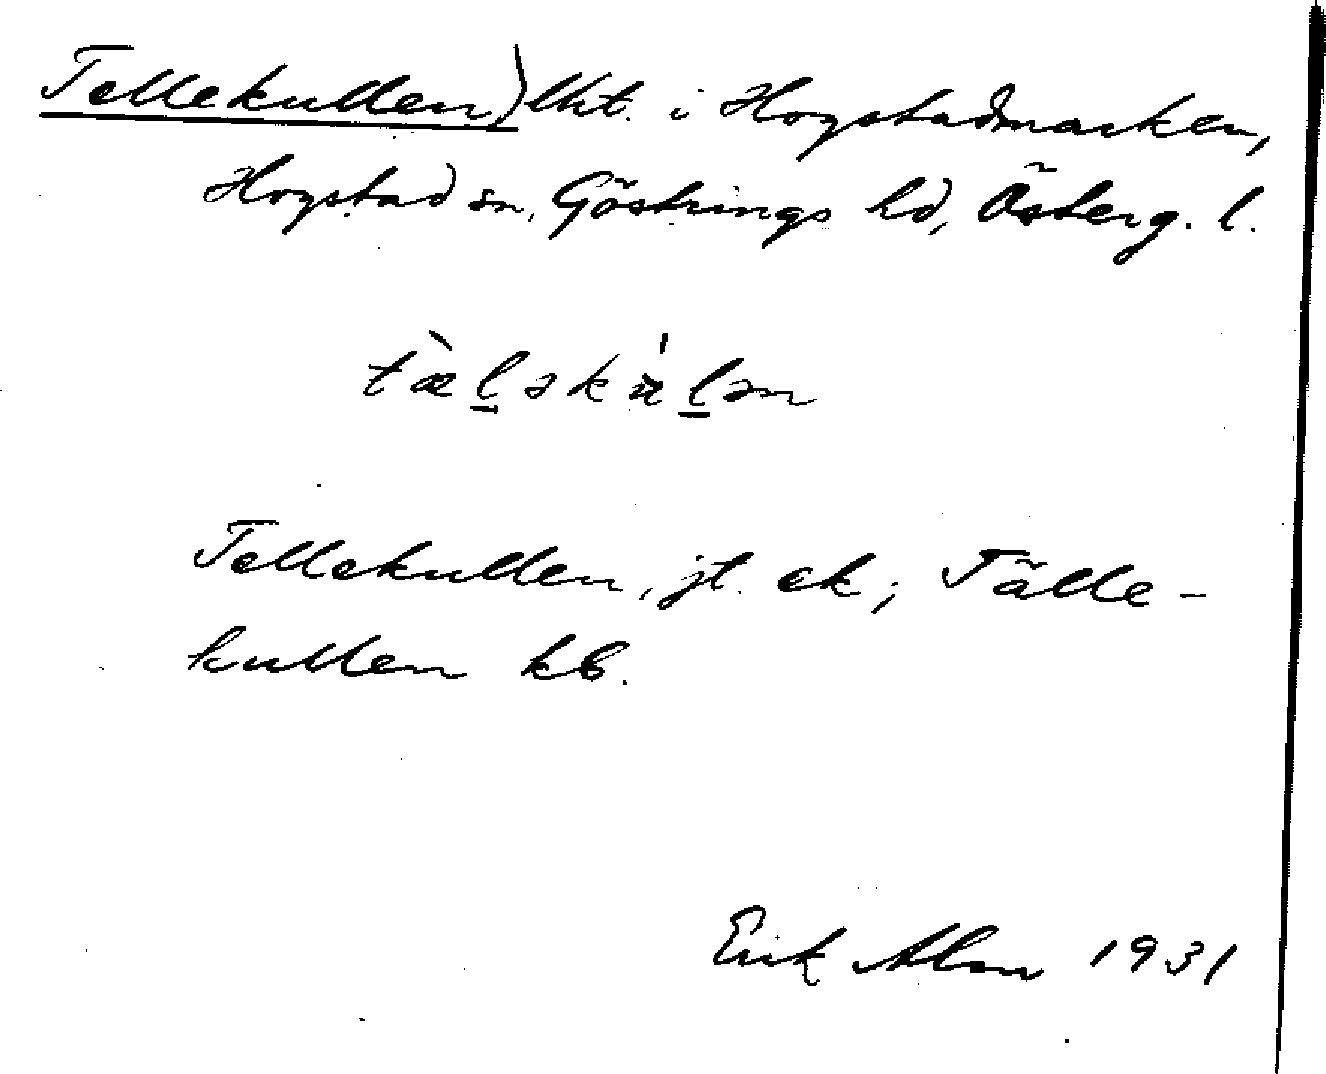 Tellekullen) lht. i Hogstadmarken,
Hogstad sn, Göstrings hd, Österg. l.
Tellekullen, jt. ek; Tälle-
kullen kb.
Erik Alm 1931